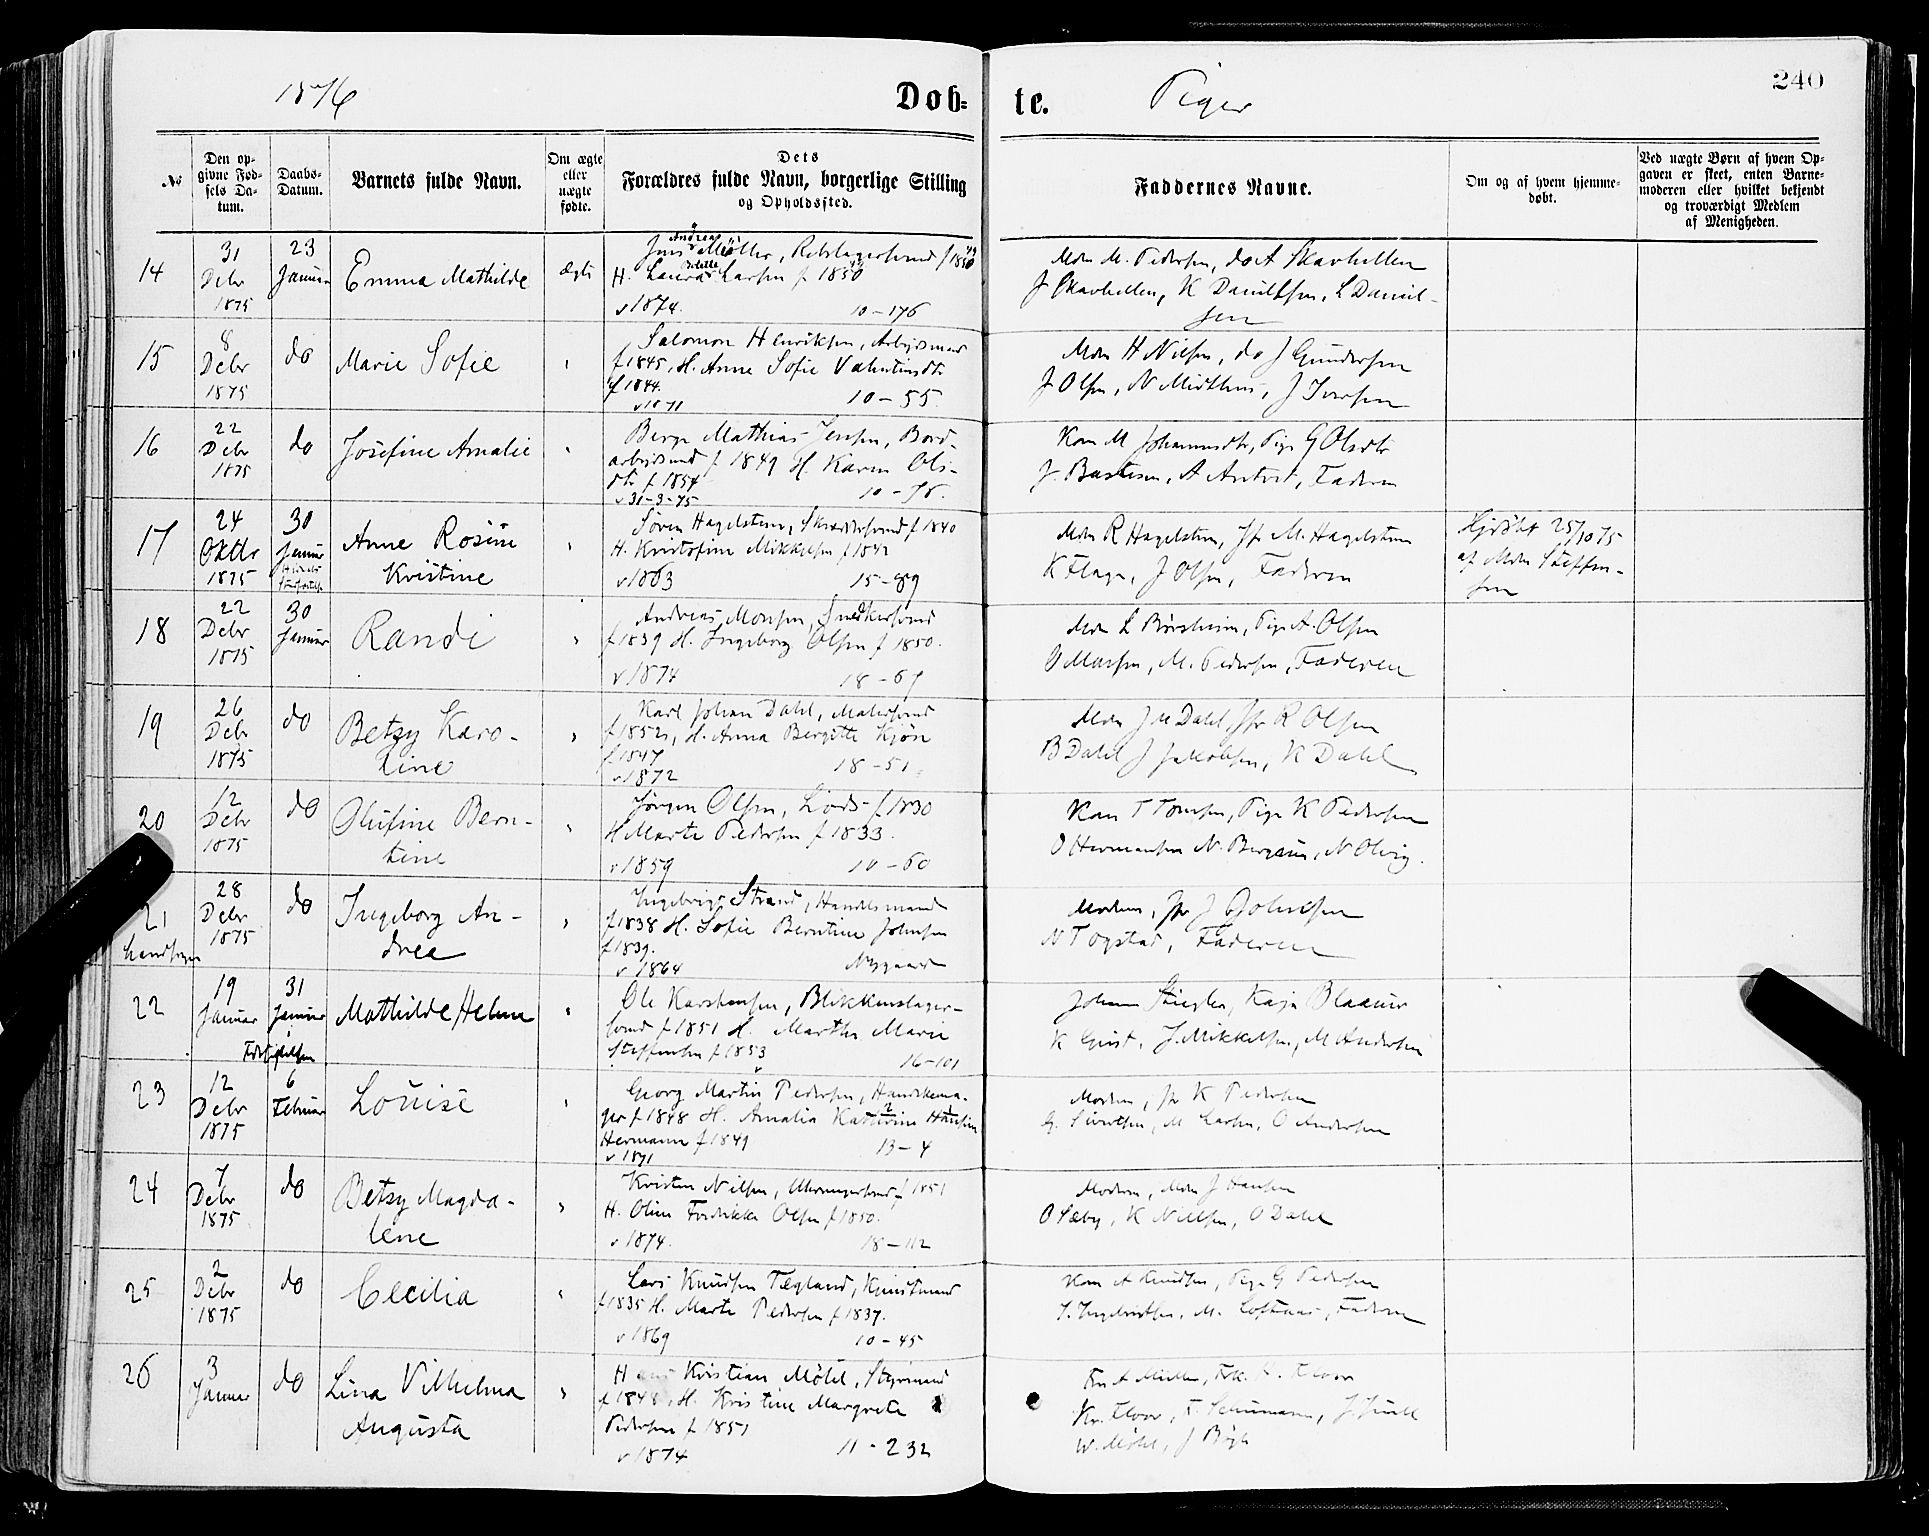 1876
Dob-
te.
Piger
240
No
Den op-
givne Fød-
sels Da-
tum.
Daabs-
Datum.
Barnets fulde Navn.
Om ægte
eller
uægte
fødte.
Dets
Forældres fulde Navn, borgerlige Stilling
og Opholdssted.
Faddernes Navne.
Om og af hvem hjemme-
døbt.
Ved uægte Børn af hvem Op-
gaven er skeet, enten Barne-
moderen eller hvilket bekjendt
og troværdigt Medlem
af Menigheden.
14
31
Debr
1875
23
Januar
Emma Mathilde
ægte
Andreas
Jens Møller, f 1850
H. Laura Larsen f 1850
v 1874. 10-176
Mdm M. Pedersen, do A Skavhellen
J Skavhellen, K Danielsen, L Daniel-
sen
15
8
Debr
1875
do
Marie Sofie
Salomon Henriksen, Arbejdsmand
f 1845, H. Anne Sofie
f 1844.
v 1871 10-55
Mdm H Nilsen, do J Gundersen
J Olsen, N Midthus, J Iversen
16
22
Debr
1875
do
Josefine Amalie
Berge Mathias Jensen, Bord-
f 1849 H. Karen Ols-
dtr f 1854
v 31-3-75 10-76.
Kone M Johannesdtr, Pige G Olsdtr
J. Bastesen, A, Faderen
17
24
Oktbr
1875
30
Januar
Anne Rosine
Kristine
Søren Hagelsteen, f 1840
H. Kristofine Mikkelsen f 1842
v 1863 15-89
Mdm R Hagelsteen, Jfr M. Hagelsteen
K Flage, J Olsen, Faderen
Hjdøbt 25/10 75
af Mdm Steffen-
sen
18
22
Debr
1875
30
Januar
Randi
Andreas Monsen, Snedkersvend
f 1839 H. Ingeborg Olsen f 1850.
v 1874 18-67
Mdm L Børsheim, Pige A. Olsen
M. Pedersen, Faderen
19
26
Debr
1875
do
Betzy Karo-
line
Karl Johan Dahl, Malersvend
f 1852, H. Anna Bergitte
f 1847
v 1872 18-51
Mdm J M Dahl, Jfr R Olsen
B Dahl J Jakobsen, K Dahl
20
12
Debr
1875
do
Olufine Bern-
tine
Jørgen Olsen, Lods f 1830
H Marte Pedersen f 1833.
v 1859 10-60
Kone T Tomsen, Pige K Pedersen
O Hermansen N. Bergsen, N Olvig.
21
28
Debr
1875
do
Ingeborg An-
drea
Ingebrigt Strand, Handelsmand
f 1838 H. Sofie Berntine Johnsen
f 1839.
v 1864 Nygaard
Moderen, Jfr J Johnsen
N Togstad, Faderen
22
19
Januar
31
Januar
i
Mathilde Helene
Ole Karstensen, Blikkenslager-
svend f 1851 H. Marthe Marie
Steffensen f 1853
16-101
Johan, Kaja Blaauw
K, J. Mikkelsen, M Andersen
23
12
Debr
1875
6
Februar
Louise
Georg Martin Pedersen, Handskema-
ger f 1848 H. Amalia Katherine Hansine
Hermann f 1849
v 1871 13-4
Moderen, Jfr K Pedersen
G. Sivertsen, M Larsen, O Andersen
24
7
Debr
1875
do
Betsy Magda-
lene
Kristen Nilsen, f 1851
H. Oline Fredrikke Olsen f 1850.
v 1874. 18-112
Moderen, Mdm J Hansen
O Sæby, K Nielsen, O Dahl
25
2
Debr
1875
do
Cecilia
Lars Knudsen Tegland,
f 1835 H. Marte Pedersen f 1837.
v 1869 10-45
Kone A Knudsen, Pige G Pedersen
M. Loftaas, Faderen
26
3
Januar
do
Lina Vilhelma
Augusta
Hans Kristian Møhl, Styrmand
f 1848, H. Kristine Margrete
Pedersen f 1851
v 1874 11-232
Kr. Floor, F. Schumann,
W. Møhl, J